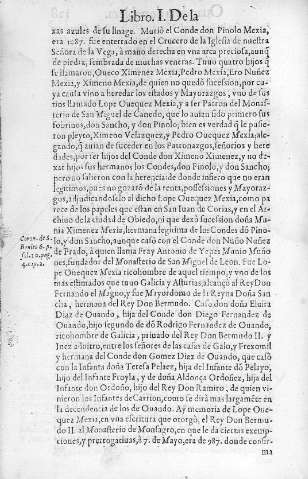 Libro. I. De la
zas azules de su linage. Murió el Conde don Pinolo Mexia,
era 1087. fue enterrado en el Crucero de la Iglesia de nuestra
Señora de la Vega, à mano derecha en vna arca preciosa, aunq̃
de piedra, sembrada de muchas veneras. Tuuo quatro hijos q̃
se llamaron, Oueco Ximenez Mexia, Pedro Mexia, Ero Nuñez
Mexia, y Ximeno Mexia, de quien no quedó sucession, por cu-
ya causa vino a heredar los estados y Mayorazgos, vno de sus
rios llamado Lope Ouequez Mexia, y a ser Patron del Monas-
terio de San Miguel de Canedo, que lo auian sido primero sus
sobrinos, don Sancho, y don Pinolo; bien es verdad q̃ le pusie-
ron pleyto, Ximeno Velazquez, y Pedro Ouequez Mexia, ale-
gando, q̃ auian de suceder en los Patronazgos, señorios y here
dades, por ser hijos del Conde don Ximeno Ximenez, y no de-
xar hijos sus hermanos los Condes, don Pinolo, y don Sancho;
pero no salieron con la
legitimos, pues no gozarõ de la renta, possessiones y Mayoraz-
gos, adjudicandoselo al dicho Lope Ouequez Mexia, como pa
rece de los papeles que estan en San Iuan de Corias, y en el Ar-
chiuo de la ciudad de Obiedo, ni que dexó sucession doña Mu-
nia Ximenez Mexia, hermana legitima de los Condes dõ Pino-
lo, y don Sancho, aunque casó con el Conde don Nuño Nuñez
de Prado, à quien llama Fray Antonio de Yepes Munio Muño
nes, fundador del Monasterio de San Miguel de Leon. Fue Lo-
pe Ouequez Mexia ricohombre de aquel tiempo, y vno de los
mas estimados que tuuo Galicia y Asturias, alcançó al Rey Don
Fernando el Magno, y fue Mayordomo de la Reyna Doña San-
cha, hermana del Rey Don Bermudo. Casó con doña Eluira
Diaz de Ouando, hija del Conde don Diego Fernandez de
Ouando, hijo segundo de dõ Rodrigo Fernandez de Ouando,
ricohombre de Galicia, priuado del Rey Don Bermudo II. y
Inez alo otro, entre los señores de las casas de Galo, y Frexomil
y hermana del Conde don Gomez Diaz de Ouando, que casó
con la Infanta doña Teresa Pelaez, hija del Infante dõ Pelayo,
hijo del Infante Froyla, y de doña Aldonça Ordoñez, hija del
Infante don Ordoño, hijo del Rey Don Ramiro, de quien vinie-
ron los Infantes de Carrion, como se dirá mas largamẽte en
la decendencia de los de Ouando. Ay memoria de Lope Oue-
quez Mexia, en vna escritura que otorgó, el Rey Don Bermu-
do II. al Monasterio de Monsagro, en que le da ciertas exemp-
ciones, y prerrogatiuas, à 7. de Mayo, era de 987. donde confir-
ma